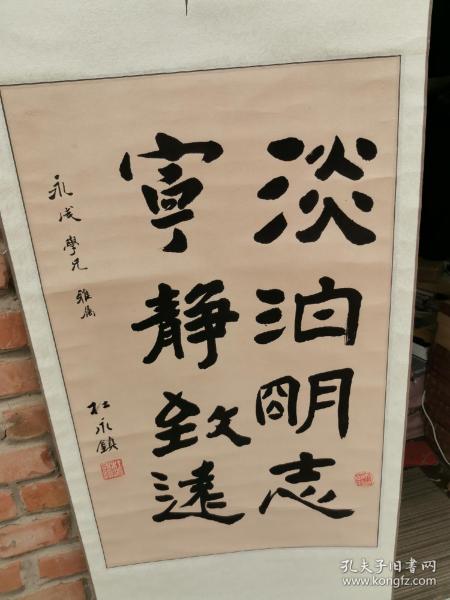 淡泊明志
寧静致遠
永成學兄 雅屬
杜永鎮
孔夫子旧书网
www.kongfz.com